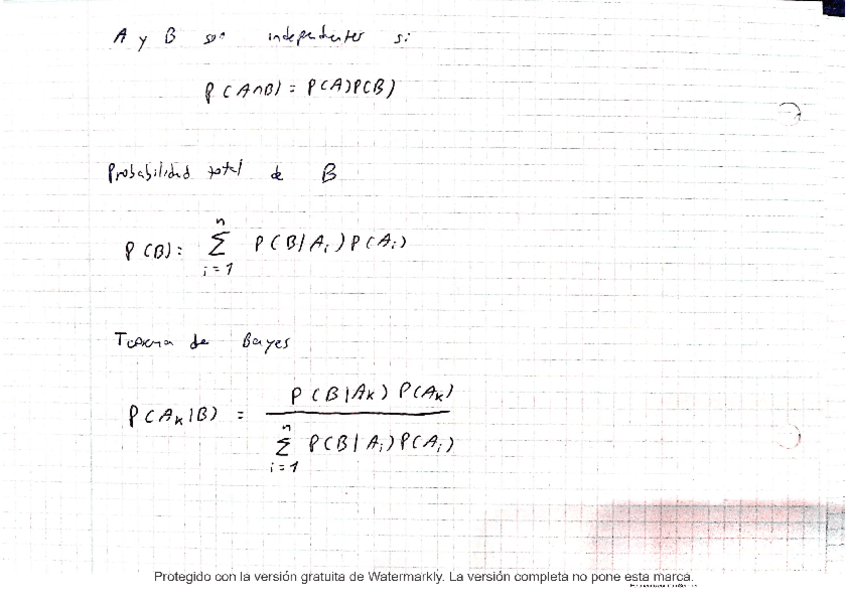 A y B son independientes si
P(A∩B) = P(A)P(B)
Probabilidad total de B
P(B) = n∑i=1 P(B|Ai)P(Ai)
Teorema de Bayes
P(Ak|B) = P(B|Ak) P(Ak) / n∑i=1 P(B|Ai)P(Ai)
Protegido con la versión gratuita de Watermarkly. La versión completa no pone esta marca.